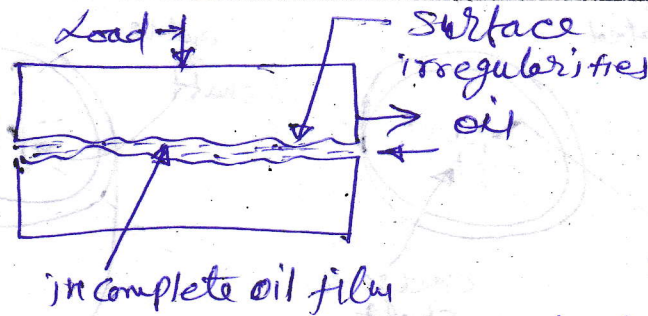 Load
Surface
irregularities
oil
incomplete oil film